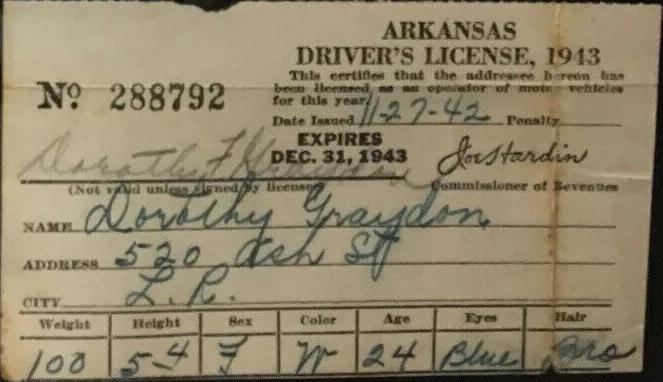 ARKANSAS
DRIVER'S LICENSE, 1943
This certifies that the addressee hereon has
been licensed, as an operator of motor vehicles
for this year
Nº 288792
Date Issued 11-27-42 Penalty
EXPIRES
DEC. 31, 1943
Dorothy F Graydon
Joe Hardin
(Not valid unless signed by licensee)
Commissioner of Revenues
NAME Dorothy Graydon
ADDRESS 520 Ash St
CITY L. R.
Weight Height Sex Color Age Eyes Hair
100 5-4 F W 24 Blue Bro